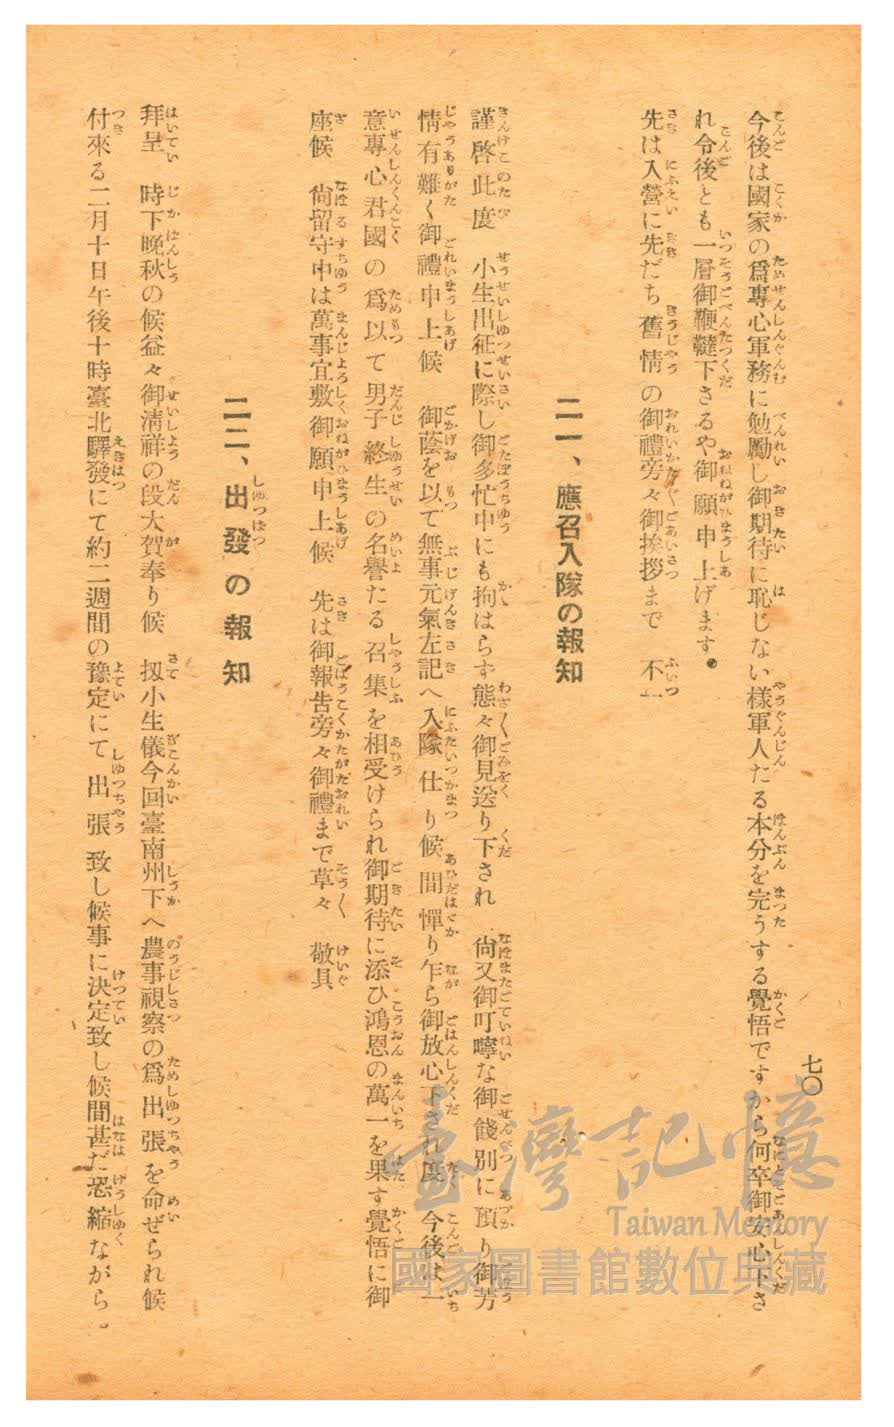 七〇
今後は國家の爲專心軍務に勉勵し御期待に恥じない樣軍人たる本分を完うする覺悟ですから何卒御安心下さ
れ今後とも一層御鞭韃下さるや御願申上げます。
先は入營に先だち舊情の御禮旁々御挨拶まで　不一
二一、應召入隊の報知
謹啓此度　小生出征に際し御多忙中にも拘はらず態々御見送り下され　尙又御叮嚀な御餞別に預り御芳
情有難く御禮申上候　御蔭を以て無事元氣左記へ入隊仕り候間憚り乍ら御放心下され度　今後は一
意專心君國の爲以て男子終生の名譽たる召集を相受けられ御期待に添ひ鴻恩の萬一を果す覺悟に御
座候　尙留守中は萬事宜敷御願申上候　先は御報告旁々御禮まで草々　敬具
二二、出發の報知
拜呈　時下晩秋の候益々御淸祥の段大賀奉り候　扨小生儀今回臺南州下へ農事視察の爲出張を命ぜられ候
付來る二月十日午後十時臺北驛發にて約二週間の豫定にて出張致し候事に決定致し候間甚だ恐縮ながら
臺灣記憶
Taiwan Memory
國家圖書館數位典藏